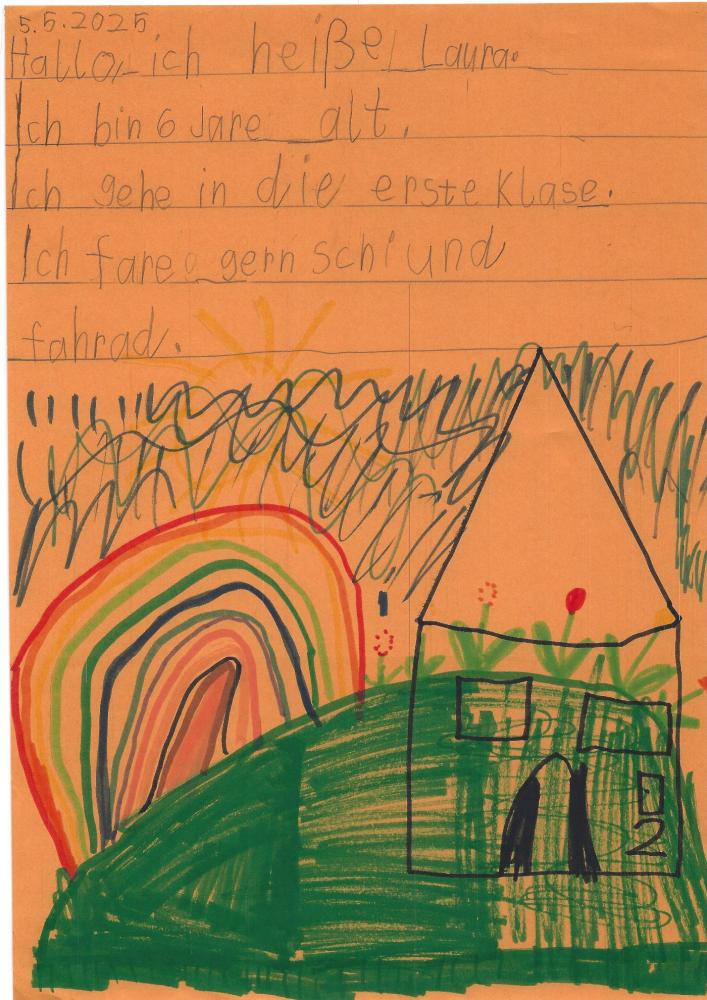 5.5.2025
Hallo, ich heiße Laura.
Ich bin 6 Jare alt.
Ich gehe in die erste Klase.
Ich fare gern schi und
fahrad.
2